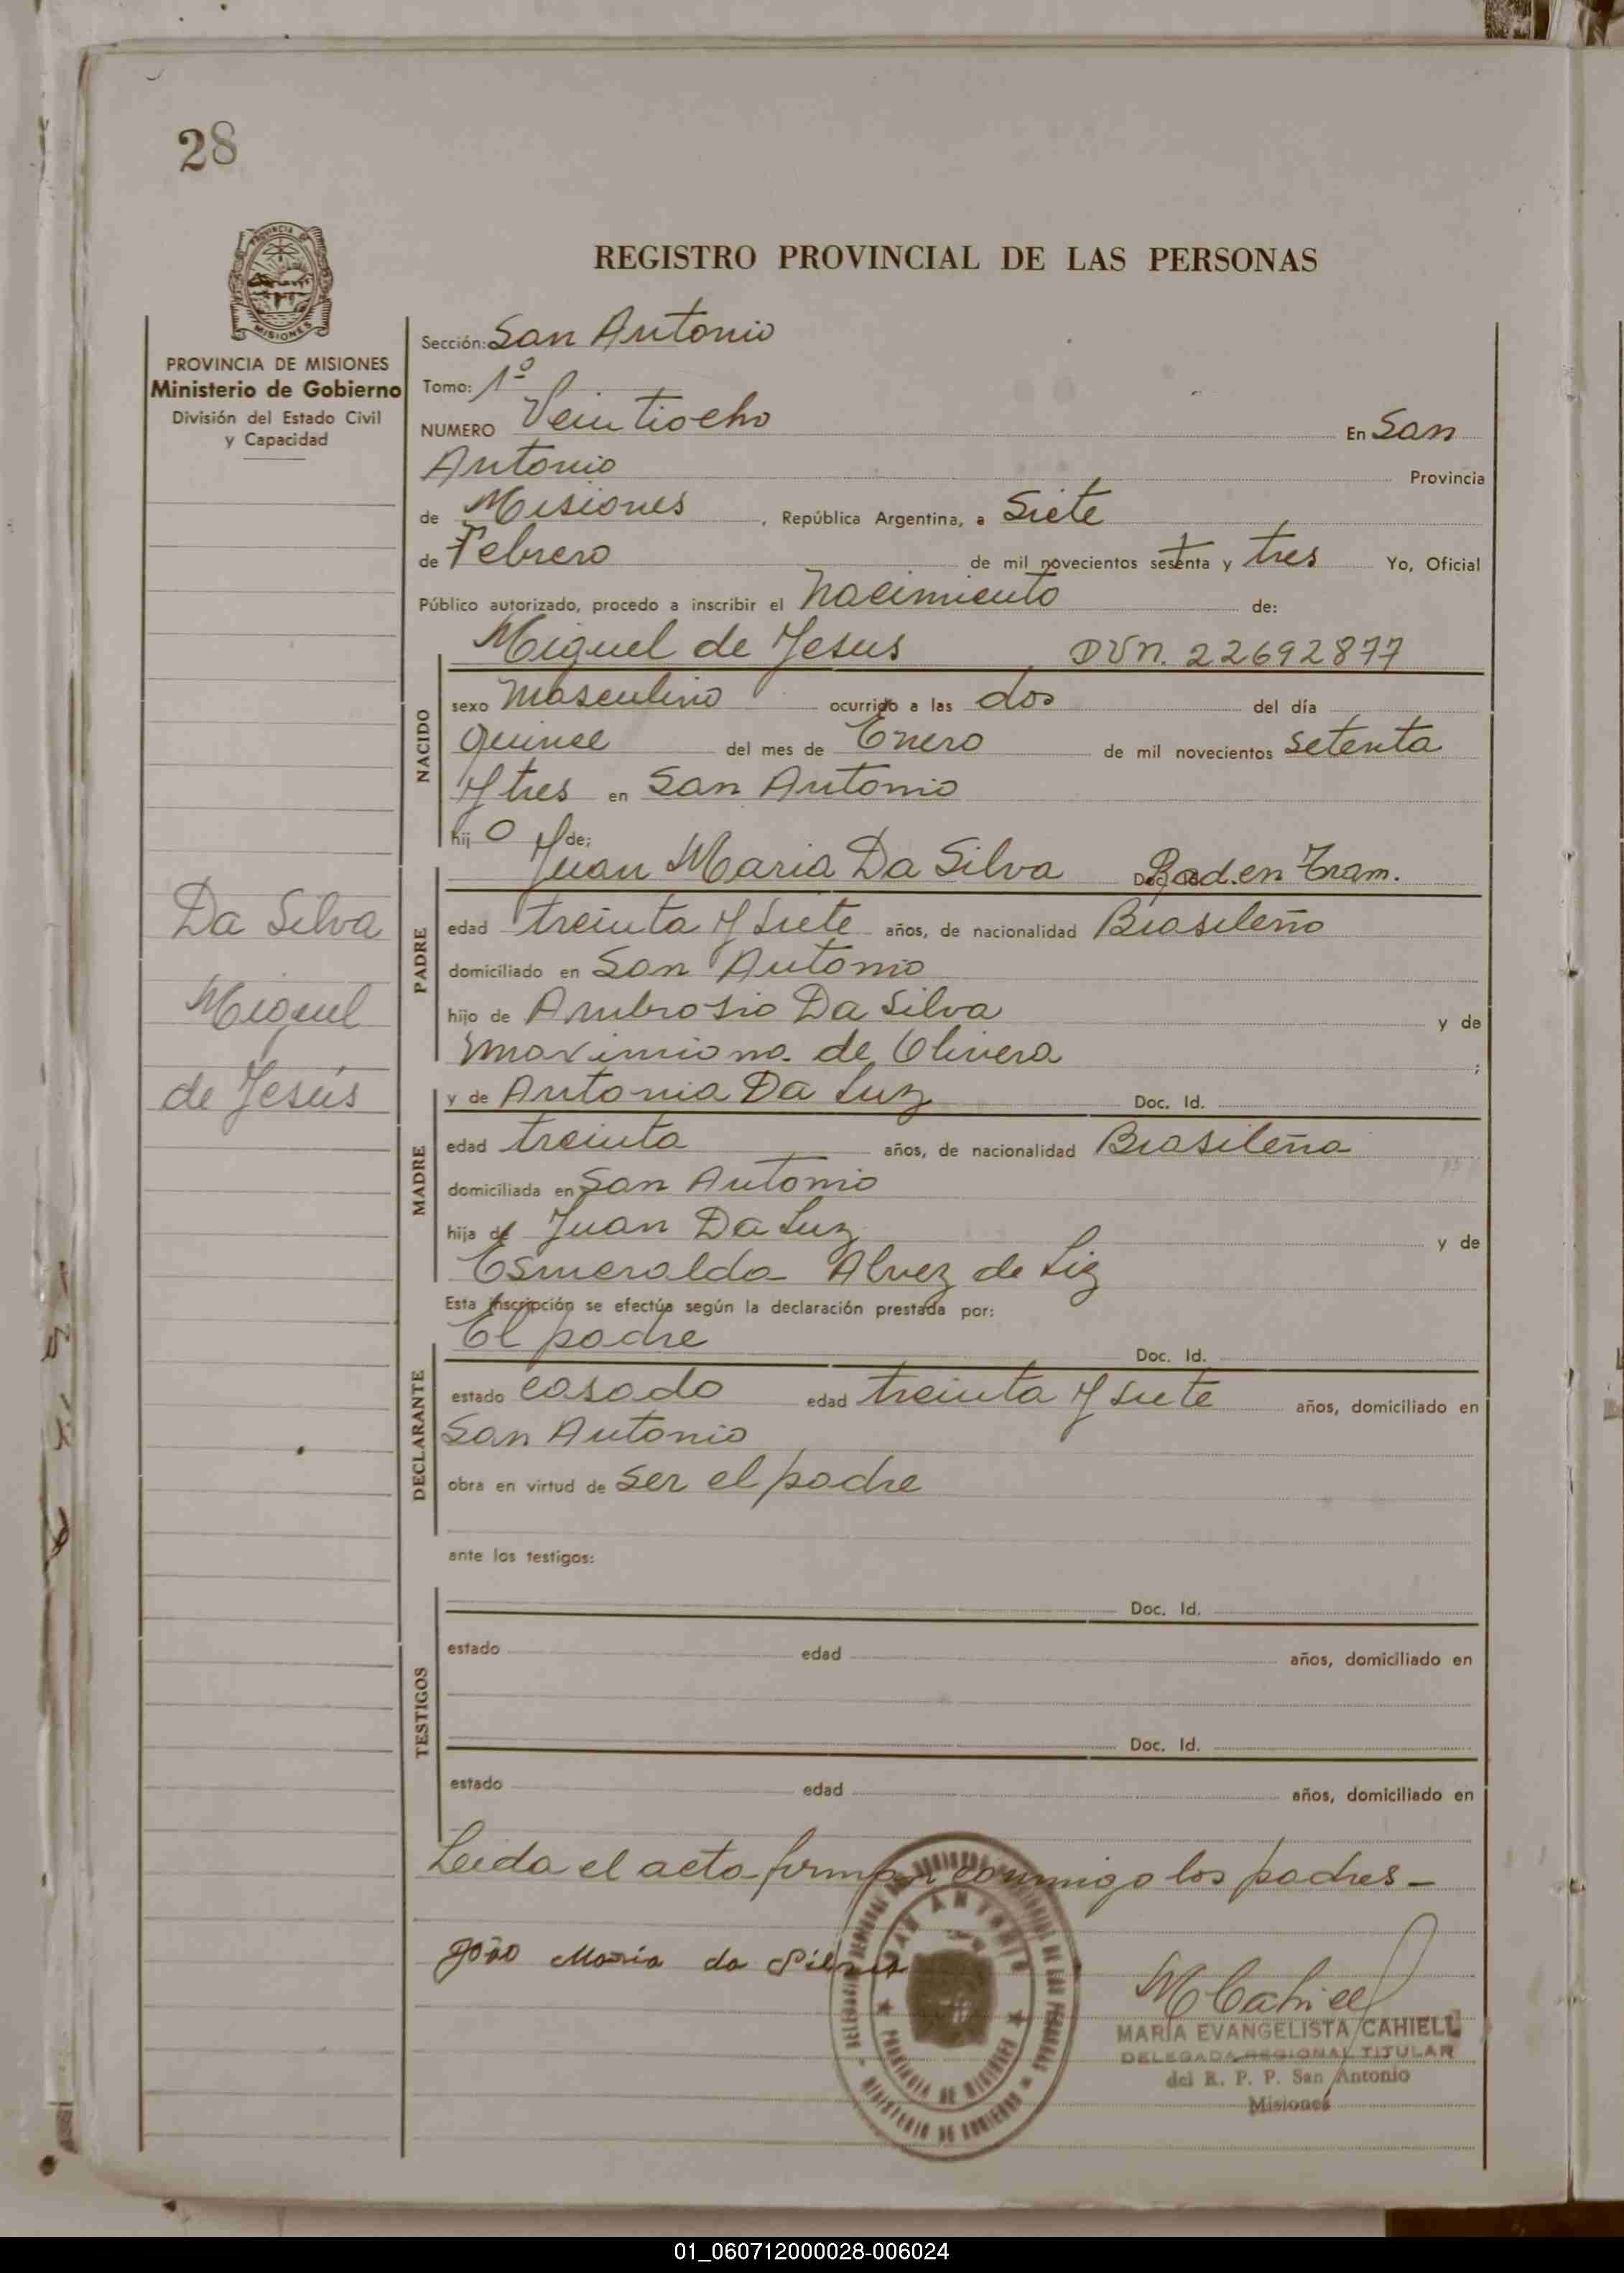 28
PROVINCIA DE
MISIONES
PROVINCIA DE MISIONES
Ministerio de Gobierno
División del Estado Civil
y Capacidad
REGISTRO PROVINCIAL DE LAS PERSONAS
Sección: San Antonio
Tomo: 1º
NUMERO Veintiocho En San
Antonio Provincia
de Misiones, República Argentina, a Siete
de Febrero de mil novecientos setenta y tres Yo, Oficial
Público autorizado, procedo a inscribir el Nacimiento de:
Miguel de Jesus DUN. 22692877
NACIDO
sexo Masculino ocurrido a las dos del día
quince del mes de Enero de mil novecientos setenta
y tres en San Antonio
hijo de:
Juan Maria Da Silva Rad. en Tram.
PADRE
edad treinta y siete años, de nacionalidad Brasileño
domiciliado en San Antonio
hijo de Ambrosio Da Silva y de
Maximiana de Olivera ;
Da Silva
Miguel
de Jesús
y de Antonia Da Luz Doc. Id.
MADRE
edad treinta años, de nacionalidad Brasileña
domiciliada en San Antonio
hija de Juan Da Luz y de
Esmeralda Alvez de Liz
Esta inscripción se efectúa según la declaración prestada por:
El padre Doc. Id.
DECLARANTE
estado casado edad treinta y siete años, domiciliado en
San Antonio
obra en virtud de ser el padre
ante los testigos:
Doc. Id.
TESTIGOS
estado edad años, domiciliado en
Doc. Id.
estado edad años, domiciliado en
Leida el acta firman conmigo los padres -
João Maria da Silva
SAN ANTONIO
PROVINCIA DE MISIONES
MINISTERIO DE GOBIERNO
M Cahiell
MARIA EVANGELISTA CAHIELL
DELEGADA REGIONAL TITULAR
del R. P. P. San Antonio
Misiones
01_060712000028-006024